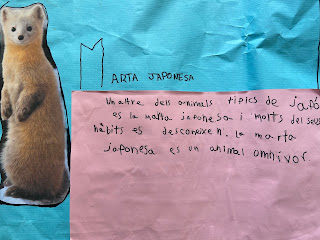 MARTA JAPONESA
Un altre dels animals típics de japó
es la marta japonesa i molts del seus
hàbits es desconeixen. la marta
japonesa es un animal omnívor.